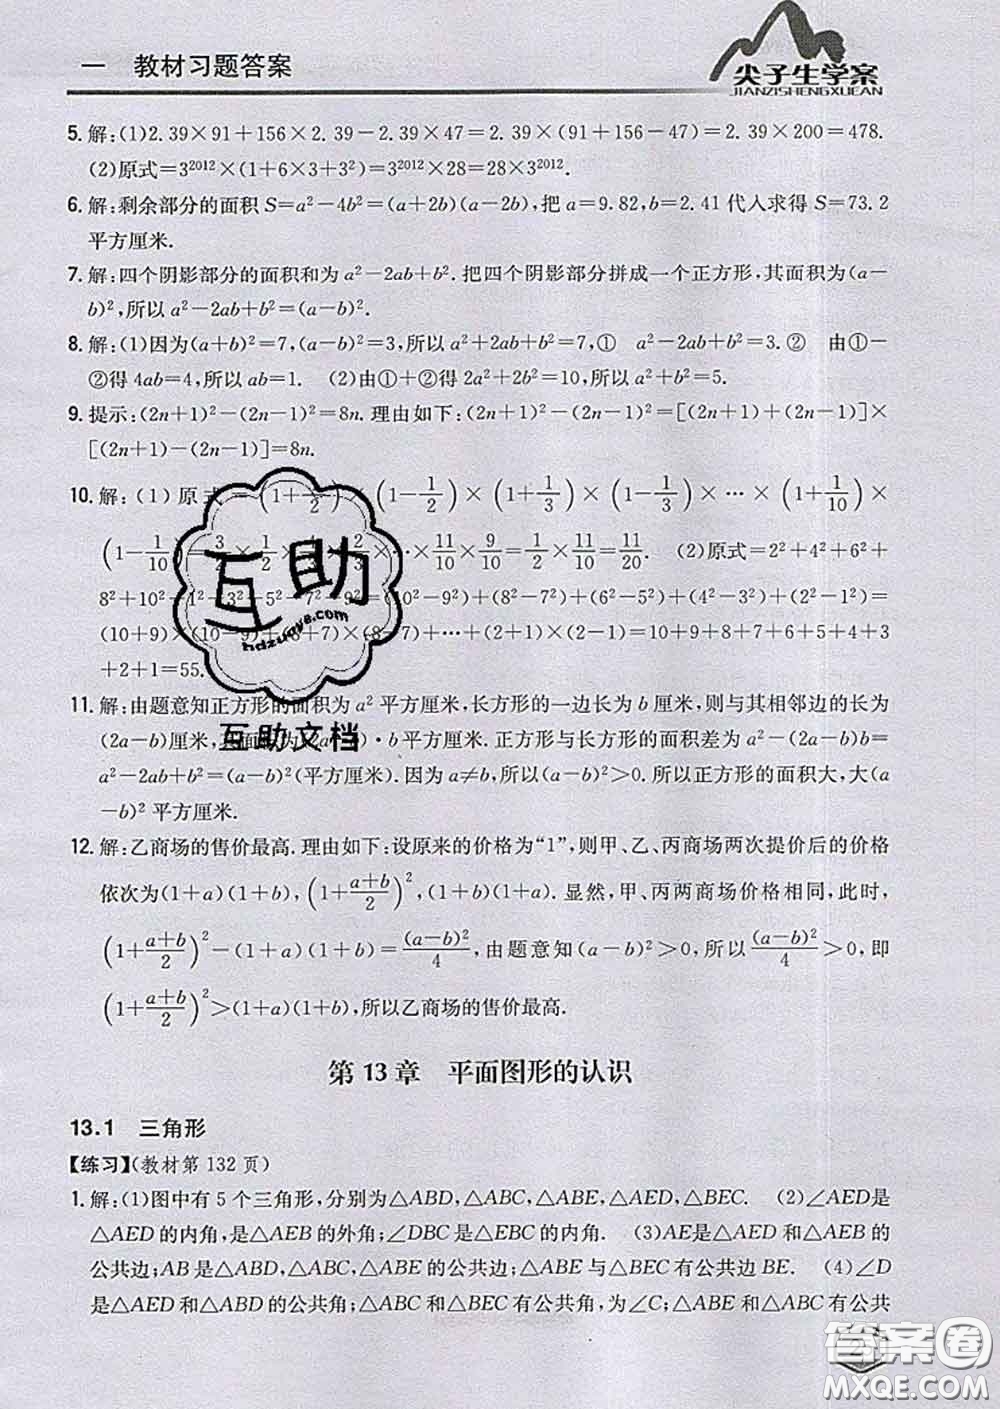 一 教材习题答案
尖子生学案
JIANZISHENGXUEAN
5. 解:(1)2.39×91+156×2.39-2.39×47=2.39×(91+156-47)=2.39×200=478.
(2)原式=3²⁰¹²×(1+6×3+3²)=3²⁰¹²×28=28×3²⁰¹².
6. 解:剩余部分的面积 S=a²-4b²=(a+2b)(a-2b),把 a=9.82,b=2.41 代入求得 S=73.2
平方厘米.
7. 解:四个阴影部分的面积和为 a²-2ab+b².把四个阴影部分拼成一个正方形,其面积为(a-
b)²,所以 a²-2ab+b²=(a-b)².
8. 解:(1)因为(a+b)²=7,(a-b)²=3,所以 a²+2ab+b²=7,① a²-2ab+b²=3.② 由①-
②得 4ab=4,所以 ab=1. (2)由①+②得 2a²+2b²=10,所以 a²+b²=5.
9. 提示:(2n+1)²-(2n-1)²=8n.理由如下:(2n+1)²-(2n-1)²=[(2n+1)+(2n-1)]×
[(2n+1)-(2n-1)]=8n.
10. 解:(1)原式=(1+1/2)×(1-1/2)×(1+1/3)×(1-1/3)×⋯×(1+1/10)×
(1-1/10)=3/2×1/2×4/3×2/3×⋯×11/10×9/10=1/2×11/10=11/20. (2)原式=2²+4²+6²+
8²+10²-1²-3²-5²-7²-9²=(10²-9²)+(8²-7²)+(6²-5²)+(4²-3²)+(2²-1²)=
(10+9)×(10-9)+(8+7)×(8-7)+⋯+(2+1)×(2-1)=10+9+8+7+6+5+4+3
+2+1=55.
11. 解:由题意知正方形的面积为 a² 平方厘米,长方形的一边长为 b 厘米,则与其相邻边的长为
(2a-b)厘米,其面积为(2a-b)·b 平方厘米.正方形与长方形的面积差为 a²-(2a-b)b=
a²-2ab+b²=(a-b)²(平方厘米).因为 a≠b,所以(a-b)²>0.所以正方形的面积大,大(a
-b)² 平方厘米.
12. 解:乙商场的售价最高.理由如下:设原来的价格为“1”,则甲、乙、丙商场两次提价后的价格
依次为(1+a)(1+b),(1+(a+b)/2)²,(1+b)(1+a).显然,甲、丙两商场价格相同,此时,
(1+(a+b)/2)²-(1+a)(1+b)=(a-b)²/4,由题意知(a-b)²>0,所以(a-b)²/4>0,即
(1+(a+b)/2)²>(1+a)(1+b),所以乙商场的售价最高.
第 13 章 平面图形的认识
13.1 三角形
【练习】(教材第 132 页)
1. 解:(1)图中有 5 个三角形,分别为△ABD,△ABC,△ABE,△AED,△BEC. (2)∠AED是
△AED 的内角,是△AEB 的外角;∠DBC 是△EBC 的内角. (3)AE是△AED 和△AEB 的
公共边;AB 是△ABD,△ABC,△ABE 的公共边;△ABE 与△BEC 有公共边 BE. (4)∠D
是△AED 和△ABD 的公共角;△ABC 和△BEC 有公共角,为∠C;△ABE 和△ABD 有公共
互助
hdzuoye.com
互助文档
答案圈
MXQE.COM